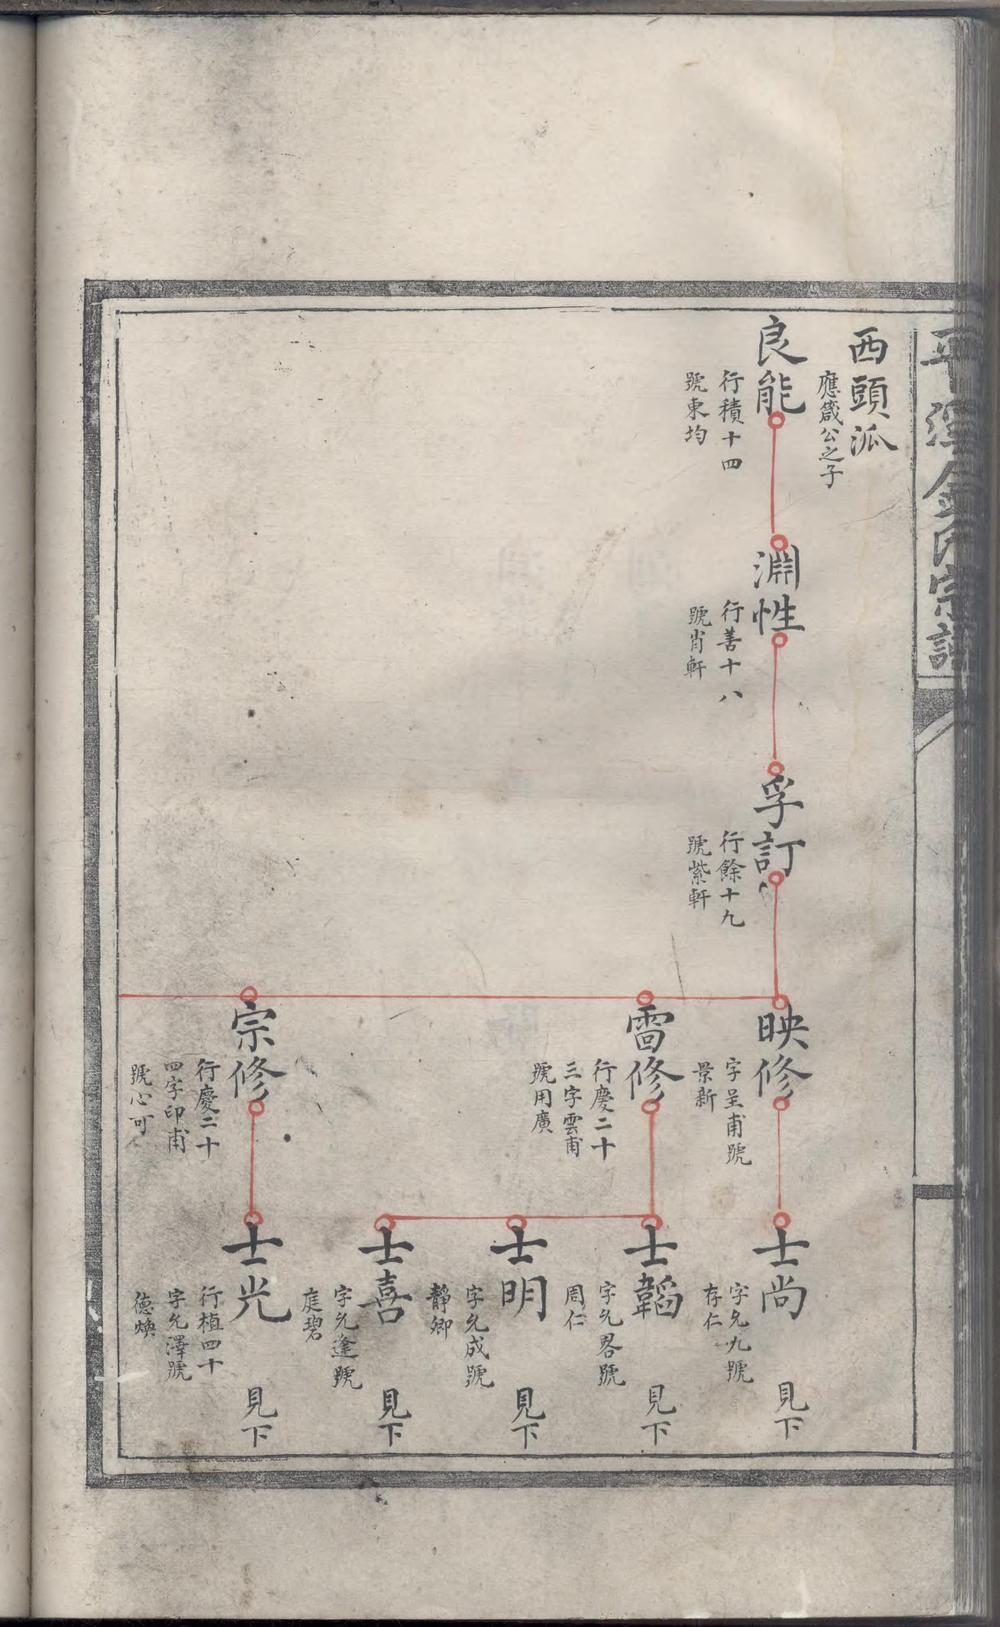 平溪金氏宗譜
西頭派
應箴公之子
良能
行積十四
號東均
淵性
行善十八
號肖軒
孚訂
行餘十九
號紫軒
映修
字呈甫號
景新
雷修
行慶二十
三字雲甫
號用廣
宗修
行慶二十
四字印甫
號心可
士尚
字允九號
存仁
見下
士韜
字允畧號
周仁
見下
士明
字允成號
靜卿
見下
士喜
字允逢號
庭碧
見下
士光
行植四十
字允澤號
德煥
見下